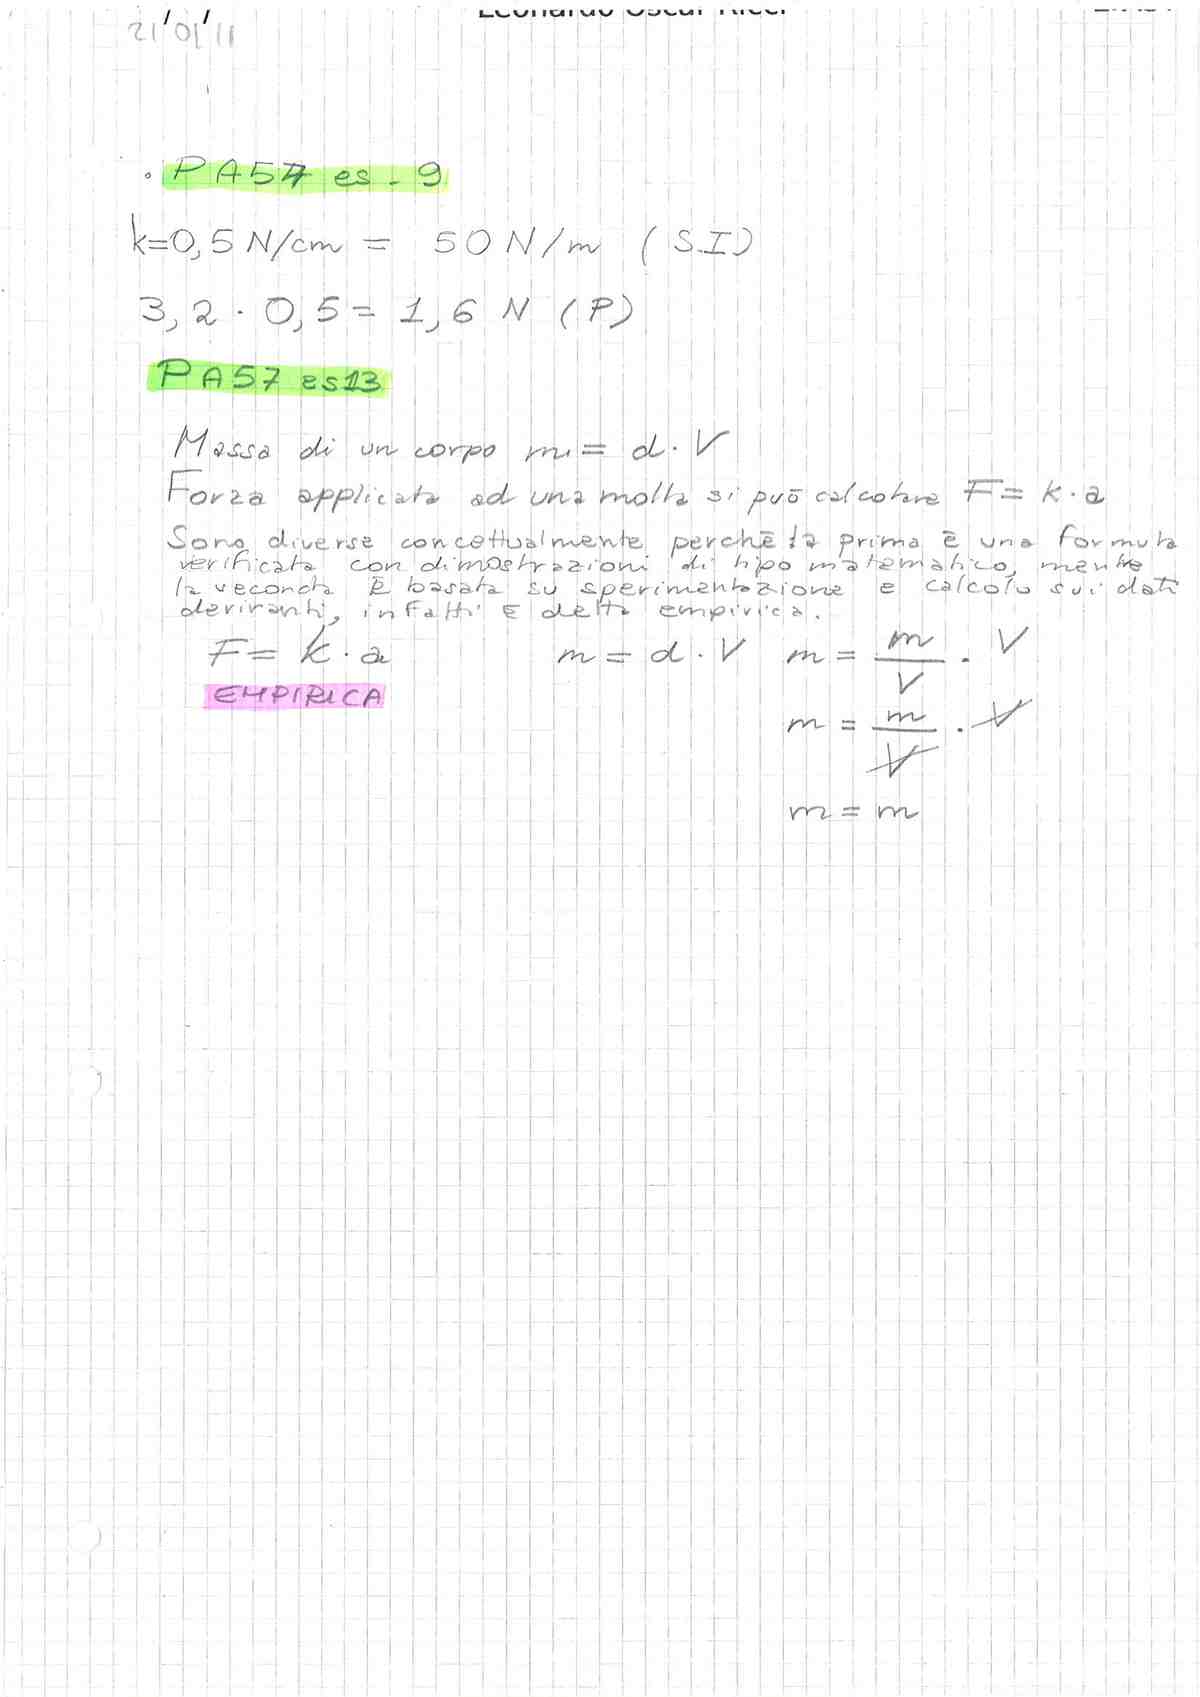 21/01/11
. PA57 es. 9
k=0,5 N/cm = 50 N/m (S.I)
3,2 . 0,5 = 1,6 N (P)
PA57 es13
Massa di un corpo m = d . V
Forza applicata ad una molla si può calcolare F = k . a
Sono diverse concettualmente perchè la prima è una formula
verificata con dimostrazioni di tipo matematico, mentre
la seconda è basata su sperimentazione e calcolo sui dati
derivanti, infatti è detta empirica.
F = k . a m = d . V m = m/V . V
EMPIRICA
m = m/V . V
m = m